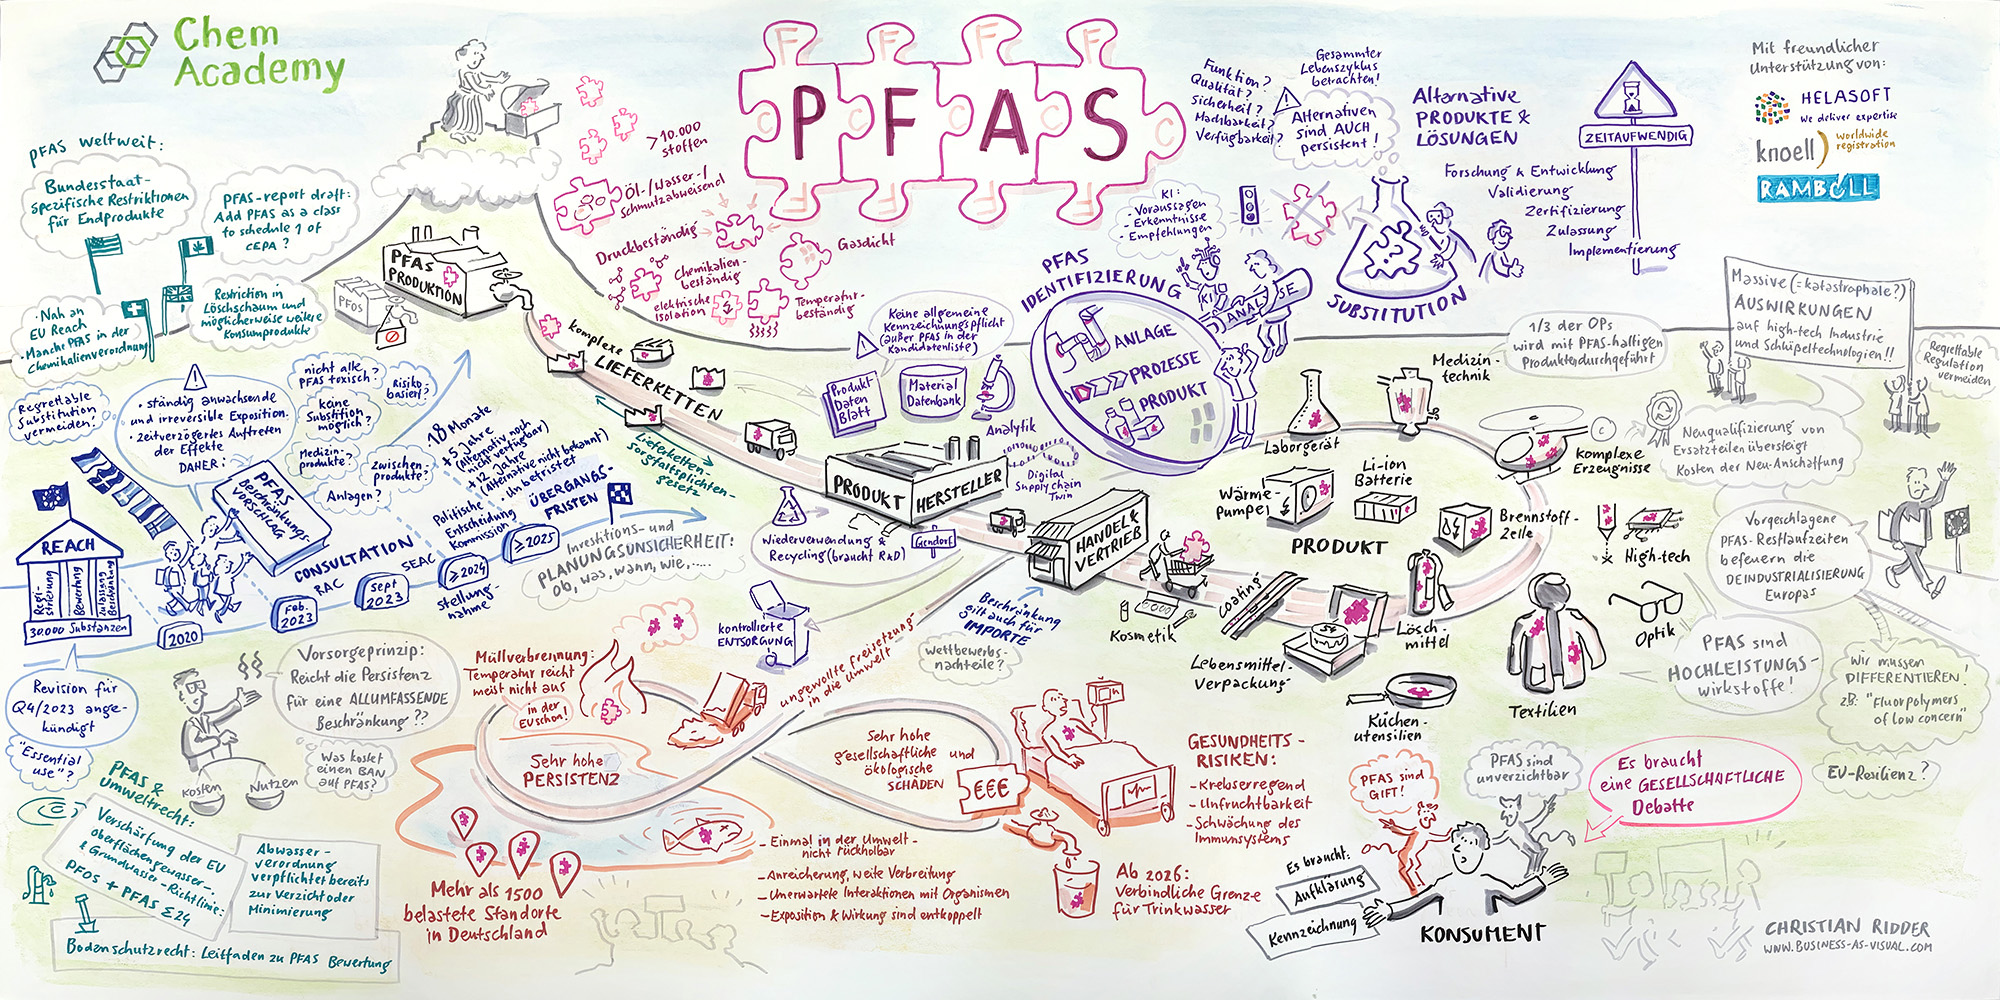 Chem
Academy
PFAS weltweit:
Bundesstaat-
spezifische Restriktionen
für Endprodukte
PFAS-report draft:
Add PFAS as a class
to schedule 1 of
CEPA?
Nah an
EU Reach
• Manche PFAS in der
Chemikalienverordnung
Restriction in
Löschschaum und
möglicherweise weitere
Konsumprodukte
PFAS
PRODUKTION
PFOS
F F F F
P F A S
C C C C C
F F F F
>10.000
stoffen
Öl-/Wasser-/
Schmutzabweisend
Druckbeständig
Gasdicht
Chemikalien-
beständig
elektrische
Isolation
Temperatur-
beständig
Funktion?
Qualität?
Sicherheit?
Machbarkeit?
Verfügbarkeit?
Gesammter
Lebenszyklus
betrachten!
Alternativen
sind AUCH
persistent!
Alternative
PRODUKTE &
LÖSUNGEN
ZEITAUFWENDIG
Forschung & Entwicklung
Validierung
Zertifizierung
Zulassung
Implementierung
Mit freundlicher
Unterstützung von:
HELASOFT
We deliver expertise
knoell)
worldwide
registration
RAMBOLL
KI:
- Voraussagen
- Erkenntnisse
- Empfehlungen
PFAS
IDENTIFIZIERUNG
KI
ANALYSE
SUBSTITUTION
ANLAGE
PROZESSE
PRODUKT
Keine allgemeine
Kennzeichnungspflicht
(außer PFAS in der
Kandidatenliste)
Produkt
Daten
Blatt
Material
Datenbank
Analytik
Digital
Supply chain
Twin
komplexe
LIEFERKETTEN
Lieferketten-
sorgfaltspflichten-
gesetz
Regrettable
Substitution
vermeiden!
• ständig anwachsende
und irreversible Exposition.
• zeitverzögertes Auftreten
der Effekte
DAHER:
nicht alle
PFAS toxisch?
Risiko-
basiert?
keine
Substitution
möglich?
Medizin-
produkte?
Zwischen-
produkte?
Anlagen?
18 Monate
+ 5 Jahre
(Alternativ noch
nicht verfügbar)
+ 12 Jahre
(Alternative nicht bekannt)
• Unbefristet
ÜBERGANGS-
FRISTEN
PFAS
Beschränkungs-
VORSCHLAG
REACH
Registrierung
Bewertung
Zulassung
Beschränkung
30.000 Substanzen
2020
CONSULTATION
Feb.
2023
RAC
Sept
2023
SEAC
≥2024
stellung-
nahme
Politische
Entscheidung
Kommission
≥2025
Investitions- und
PLANUNGSUNSICHERHEIT:
ob, was, wann, wie, .....
PRODUKT HERSTELLER
Wiederverwendung &
Recycling (braucht R&D)
Gendorf
HANDEL &
VERTRIEB
Beschränkung
gilt auch für
IMPORTE
Wettbewerbs-
nachteile?
kontrollierte
ENTSORGUNG
ungewollte Freisetzung
in die Umwelt
Laborgerät
Medizin-
technik
1/3 der OPs
wird mit PFAS-haltigen
Produkten durchgeführt
Komplexe
Erzeugnisse
Li-ion
Batterie
Wärme-
pumpe
PRODUKT
Brennstoff-
Zelle
High-tech
Optik
Textilien
Lösch-
mittel
coating
Kosmetik
Lebensmittel-
Verpackung
Küchen-
utensilien
Massive (=katastrophale?)
AUSWIRKUNGEN
auf high-tech Industrie
und Schlüpeltechnologien!!
Regrettable
Regulation
vermeiden
Neuqualifizierung von
Ersatzteilen übersteigt
Kosten der Neu-Anschaffung
Vorgeschlagene
PFAS-Restlaufzeiten
befeuern die
DEINDUSTRIALISIERUNG
Europas
PFAS sind
HOCHLEISTUNGS-
wirkstoffe!
Wir müssen
DIFFERENTIEREN!
z.B: "Fluorpolymers
of low concern"
EU-Resilienz?
Revision für
Q4/2023 ange-
kündigt
"Essential
use"?
Vorsorgeprinzip:
Reicht die Persistenz
für eine ALLUMFASSENDE
Beschränkung??
Was kostet
einen BAN
auf PFAS?
Kosten
Nutzen
PFAS &
Umweltrecht:
Verschärfung der EU
oberflächengewässer-
& Grundwasser-Richtlinie:
PFOS + PFAS Σ24
Abwasser-
verordnung
verpflichtet bereits
zur Verzicht oder
Minimierung
Bodenschutzrecht: Leitfaden zu PFAS Bewertung
Müllverbrennung:
Temperatur reicht
meist nicht aus
in der
EU schon!
Sehr hohe
PERSISTENZ
Mehr als 1500
belastete Standorte
in Deutschland
Sehr hohe
gesellschaftliche und
ökologische
SCHÄDEN
€€€
- Einmal in der Umwelt -
nicht rückholbar
- Anreicherung, weite Verbreitung
- Unerwartete Interaktionen mit Organismen
- Exposition & Wirkung sind entkoppelt
GESUNDHEITS-
RISIKEN:
- Krebserregend
- Unfruchtbarkeit
- Schwächung des
Immunsystems
Ab 2026:
Verbindliche Grenze
für Trinkwasser
PFAS sind
GIFT!
PFAS sind
unverzichtbar
Es braucht
eine GESELLSCHAFTLICHE
Debatte
Es braucht:
Aufklärung
Kennzeichnung
KONSUMENT
CHRISTIAN RIDDER
WWW.BUSINESS-AS-VISUAL.COM